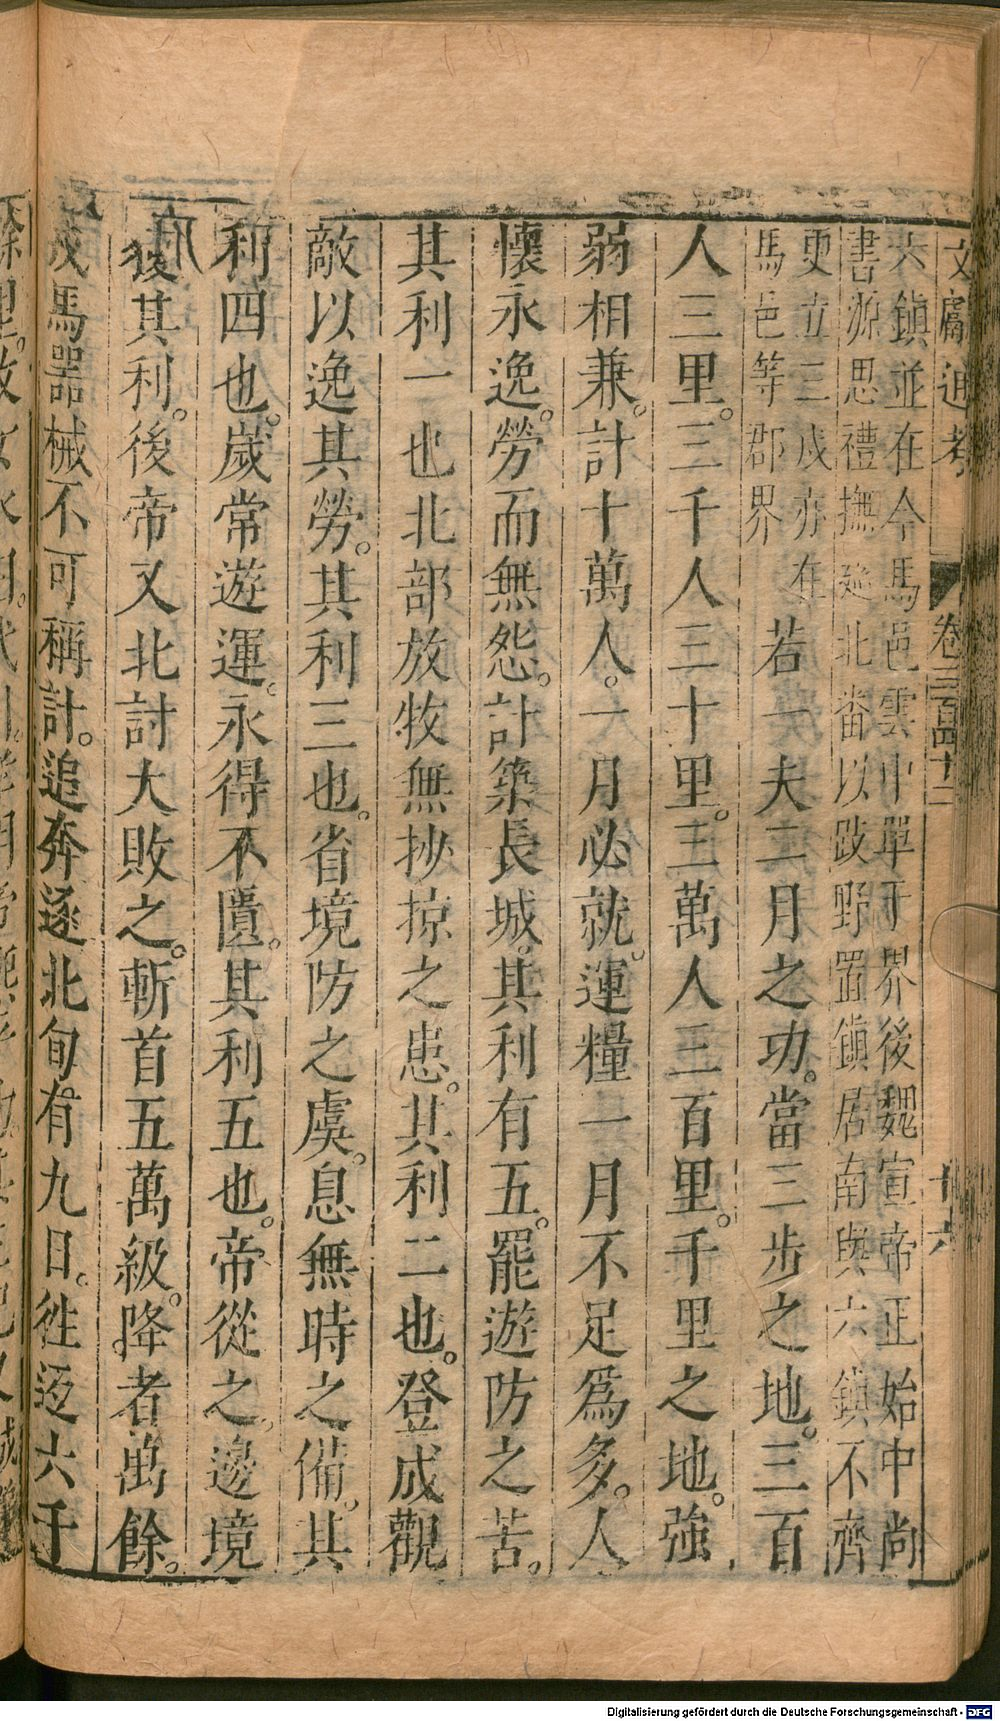 文獻通考 卷三百四十二 十六
六鎮並在今馬邑雲中單于界後魏宣帝正始中尚
書源思禮撫廵北畨以跋野置鎮居南與六鎮不齊
更立三戍亦在
馬邑等郡界
若一夫二月之功。當三步之地。三百
人三里。三千人三十里。三萬人三百里。千里之地。強
弱相兼。計十萬人。一月必就。運糧一月不足爲多。人
懷永逸。勞而無怨。計築長城。其利有五。罷遊防之苦。
其利一也北部放牧無抄掠之患。其利二也。登戍觀
敵以逸其勞。其利三也。省境防之虞。息無時之備。其
利四也。歲常遊運。永得不匱。其利五也。帝從之。邊境
後其利。後帝又北討大敗之。斬首五萬級。降者萬餘。
戎馬器械不可稱計。追奔逐北旬有九日。徃返六千
Digitalisierung gefördert durch die Deutsche Forschungsgemeinschaft - DFG